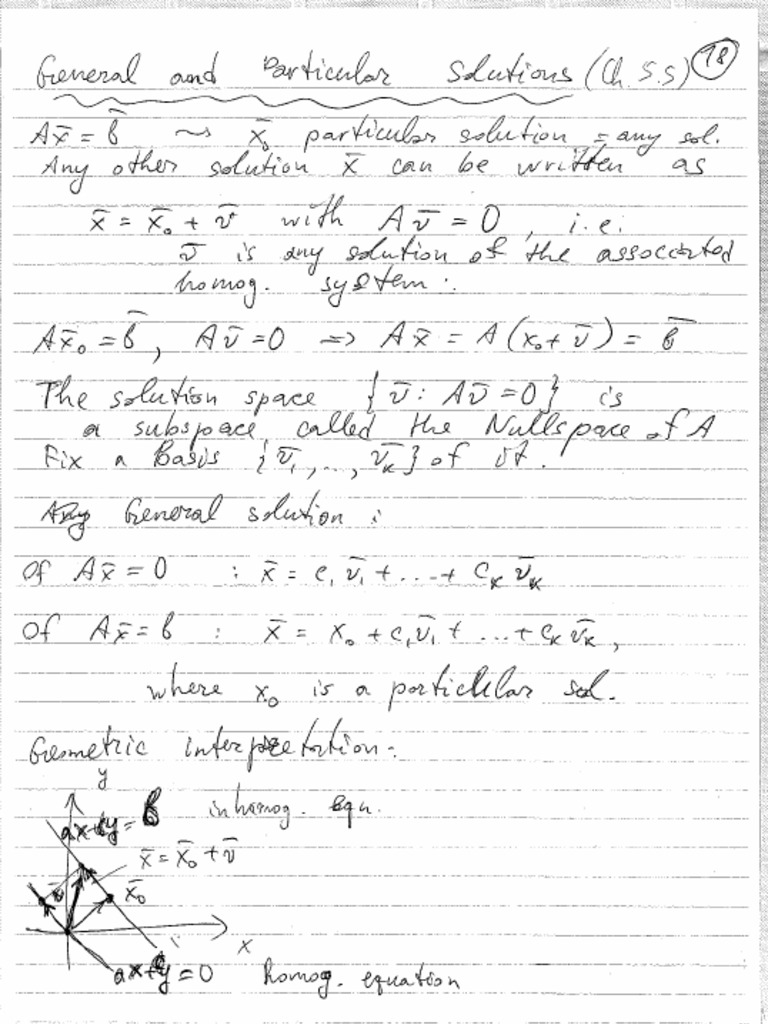 General and Particular Solutions (Ch. 5.5) 18
Ax̄ = b̄ ⤳ x̄₀ particular solution = any sol.
Any other solution x̄ can be written as
x̄ = x̄₀ + v̄ with Av̄ = 0, i.e.
v̄ is any solution of the associated
homog. system:
Ax̄₀ = b̄, Av̄ = 0 => Ax̄ = A(x₀ + v̄) = b̄
The solution space {v̄ : Av̄ = 0} is
a subspace called the Nullspace of A
Fix a Basis {v̄₁, ..., v̄ₖ} of it.
General solution :
Of Ax̄ = 0 : x̄ = c₁v̄₁ + ... + cₖv̄ₖ
Of Ax̄ = b : x̄ = x₀ + c₁v̄₁ + ... + cₖv̄ₖ,
where x₀ is a particular sol.
Geometric interpretation:
y
inhomog. eqn.
x̄ = x̄₀ + v̄
x̄₀
x
homog. equation